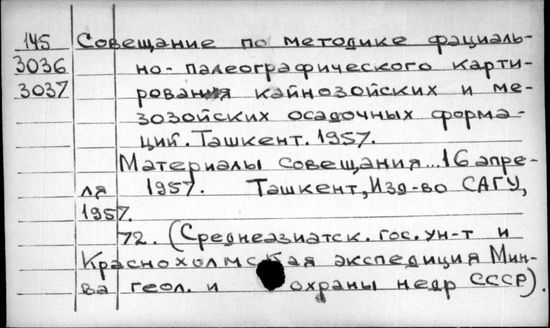 145 Совещание по методике фациаль-
3036 но-палеографического карти-
3037 рования кайнозойских и ме-
зозойских осадочных форма-
ций. Ташкент. 1957.
Материалы совещания... 16 апре-
ля 1957. Ташкент, Изд-во САГУ,
1957.
72. (Среднеазиатск. гос. ун-т и
Краснохолмская экспедиция Мин-
ва геол. и охраны недр СССР).